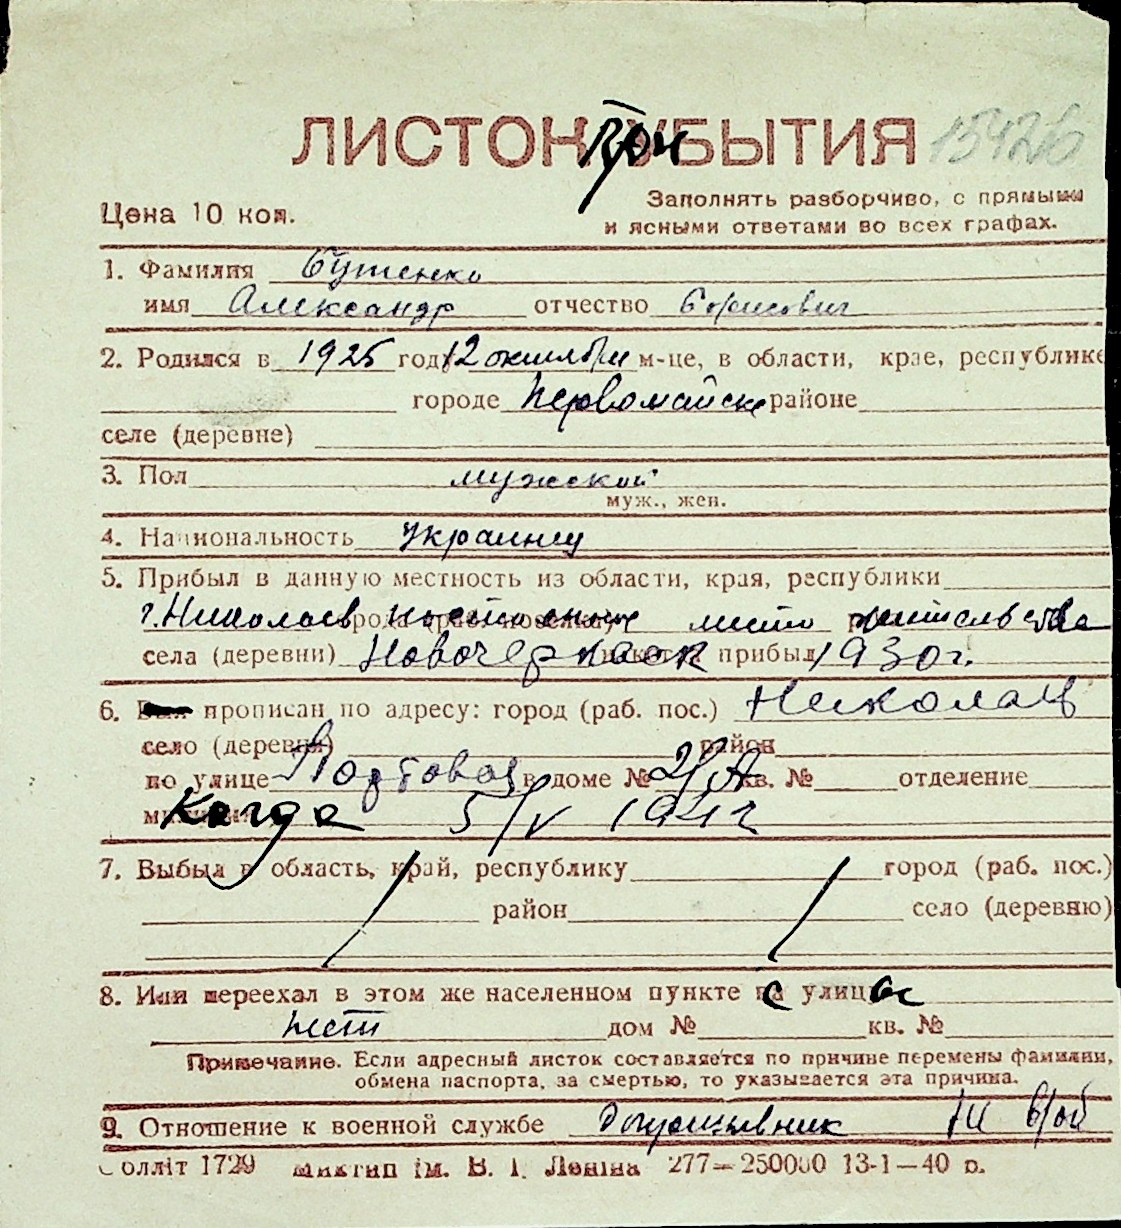 ЛИСТОК УБЫТИЯ 15426
Цена 10 коп.
Заполнять разборчиво, с прямыми
и ясными ответами во всех графах.
1. Фамилия Бутенко
имя Александр отчество Борисович
2. Родился в 1925 году 12 октября м-це, в области, крае, республике
городе Первомайске районе
селе (деревне)
3. Пол мужской
муж., жен.
4. Национальность Украинец
5. Прибыл в данную местность из области, края, республики
г. Николаев место жительства
села (деревни) Новочеркасск прибыл 1930 г.
6. прописан по адресу: город (раб. пос.) Николаев
село (деревня) район
по улице Портовая в доме № кв. № отделение
Когда 5/V 1941 г
7. Выбыл в область, край, республику город (раб. пос.)
район село (деревню)
8. Или переехал в этом же населенном пункте с улицы
нет дом № кв. №
Примечание. Если адресный листок составляется по причине перемены фамилии,
обмена паспорта, за смертью, то указывается эта причина.
9. Отношение к военной службе допризывник
Олліт 1729 Миктип ім. В. І. Леніна 277—250000 13-1—40 р.